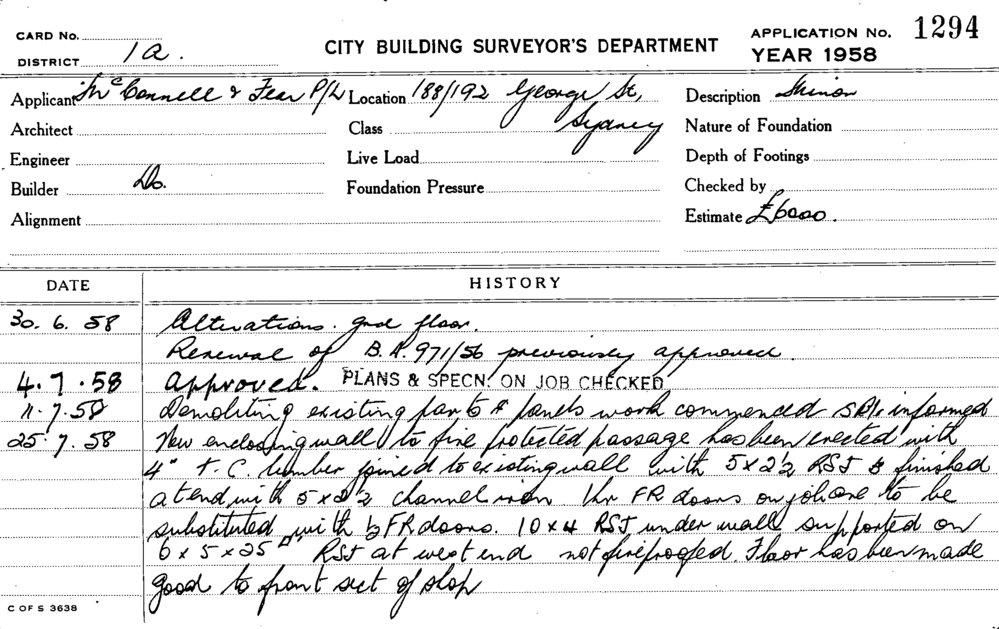 CARD No.
DISTRICT 1a.
CITY BUILDING SURVEYOR'S DEPARTMENT
APPLICATION No. 1294
YEAR 1958
Applicant McConnell & Fear P/L
Location 188/192 George St,
Sydney
Description Minor
Architect
Class
Nature of Foundation
Engineer
Live Load
Depth of Footings
Builder Do.
Foundation Pressure
Checked by
Alignment
Estimate £6000.
DATE HISTORY
30. 6. 58 Alterations. grd floor.
Renewal of B.A. 971/56 previously approved.
4. 7. 58 Approved. PLANS & SPECN. ON JOB CHECKED
11. 7. 58 Demoliting existing panels work commenced informed
25. 7. 58 New enclosing wall to fire protected passage has been erected with
4" T.C. lumber joined to existing wall with 5 x 2½ RSJ & finished
at end with 5 x 2½ channel iron 1hr FR doors on job are to be
substituted with ½ FR doors. 10 x 4 RSJ under wall supported on
6 x 5 x 25 RSJ at west end not fireproofed. Floor has been made
good to front sect of shop
C OF S 3638